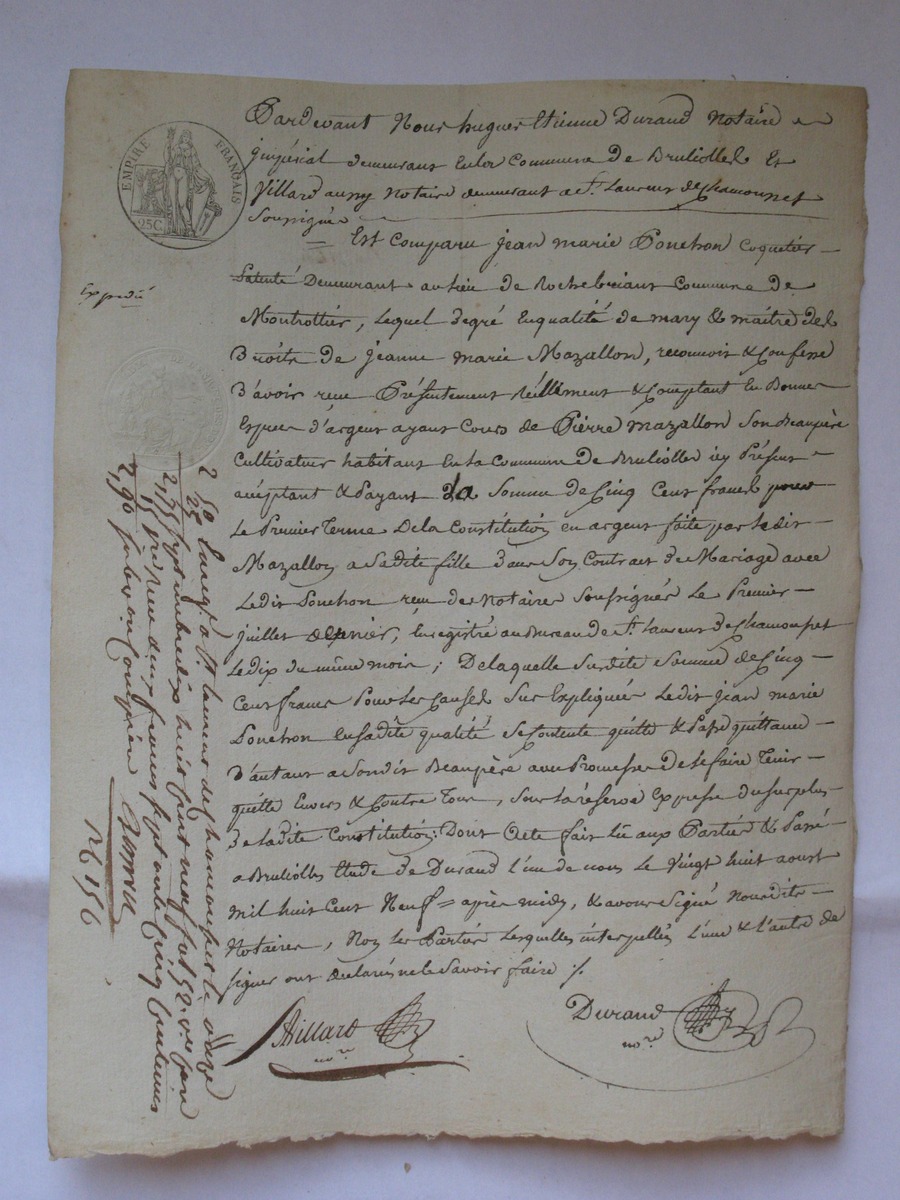 EMPIRE FRANÇAIS
25C
Pardevant Nous hugues Etienne Durand Notaire
jmpérial demeurant En la Commune de Bruliolles Et
Villard aussy Notaire demeurant a St. Laurens de Chamousset
Soussignés
Est Comparu jean marie Ponchon Coquetier
Patenté Demeurant au lieu de Rochebriant Commune de
Montrottier, lequel degré Enqualité de mary & maitre des
Droits de jeanne marie Mazallon, reconnoit & Confesse
D'avoir reçu Présentement réellement & Comptant En Bonnes
Especes d'argent ayant Cours de Pierre mazallon Son Beaupère
Cultivateur habitant En la Commune de Bruliolles icy Présent
acceptant & Payant La Somme de Cinq Cent francs pour
Le Premier Terme De la Constitution en argent faite par le dit
Mazallon a Sadite fille dans Son Contrat de Mariage avec
Ledit Ponchon reçu des Notaires Soussignés Le Premier
juillet dernier, Enregistré au Bureau de St. Laurens de Chamousset
Le dix du même mois; De laquelle Susdite Somme de Cinq
Cent francs Pour les Causes Sus Expliquées Ledit jean marie
Ponchon En sadite qualité Se Contente quitte & Passe quittance
D'autant a Sondit Beaupère avec Promesse de le faire Tenir
quitte Envers & Contre Tous, Sous la réserve Expresse du Surplus
De ladite Constitution: Dont acte fait lû aux Parties & Passé
a Bruliolles Etude de Durand L'un de nous Le Vingt huit aoust
mil huit Cent Neuf = après midy, & avons Signé Nousdits
Notaires, Non les Parties Lesquelles interpellées L'une & l'autre de
signer ont déclaré ne le Savoir faire /.
Villard
nore
Durand
nore
Expedié
2 50 Enregé. a St. laurens de chamousset le onze
25
2,75 septembre dix huit cent neuf fol 52
15 reçu deux francs soixante quinze Centimes
2,90